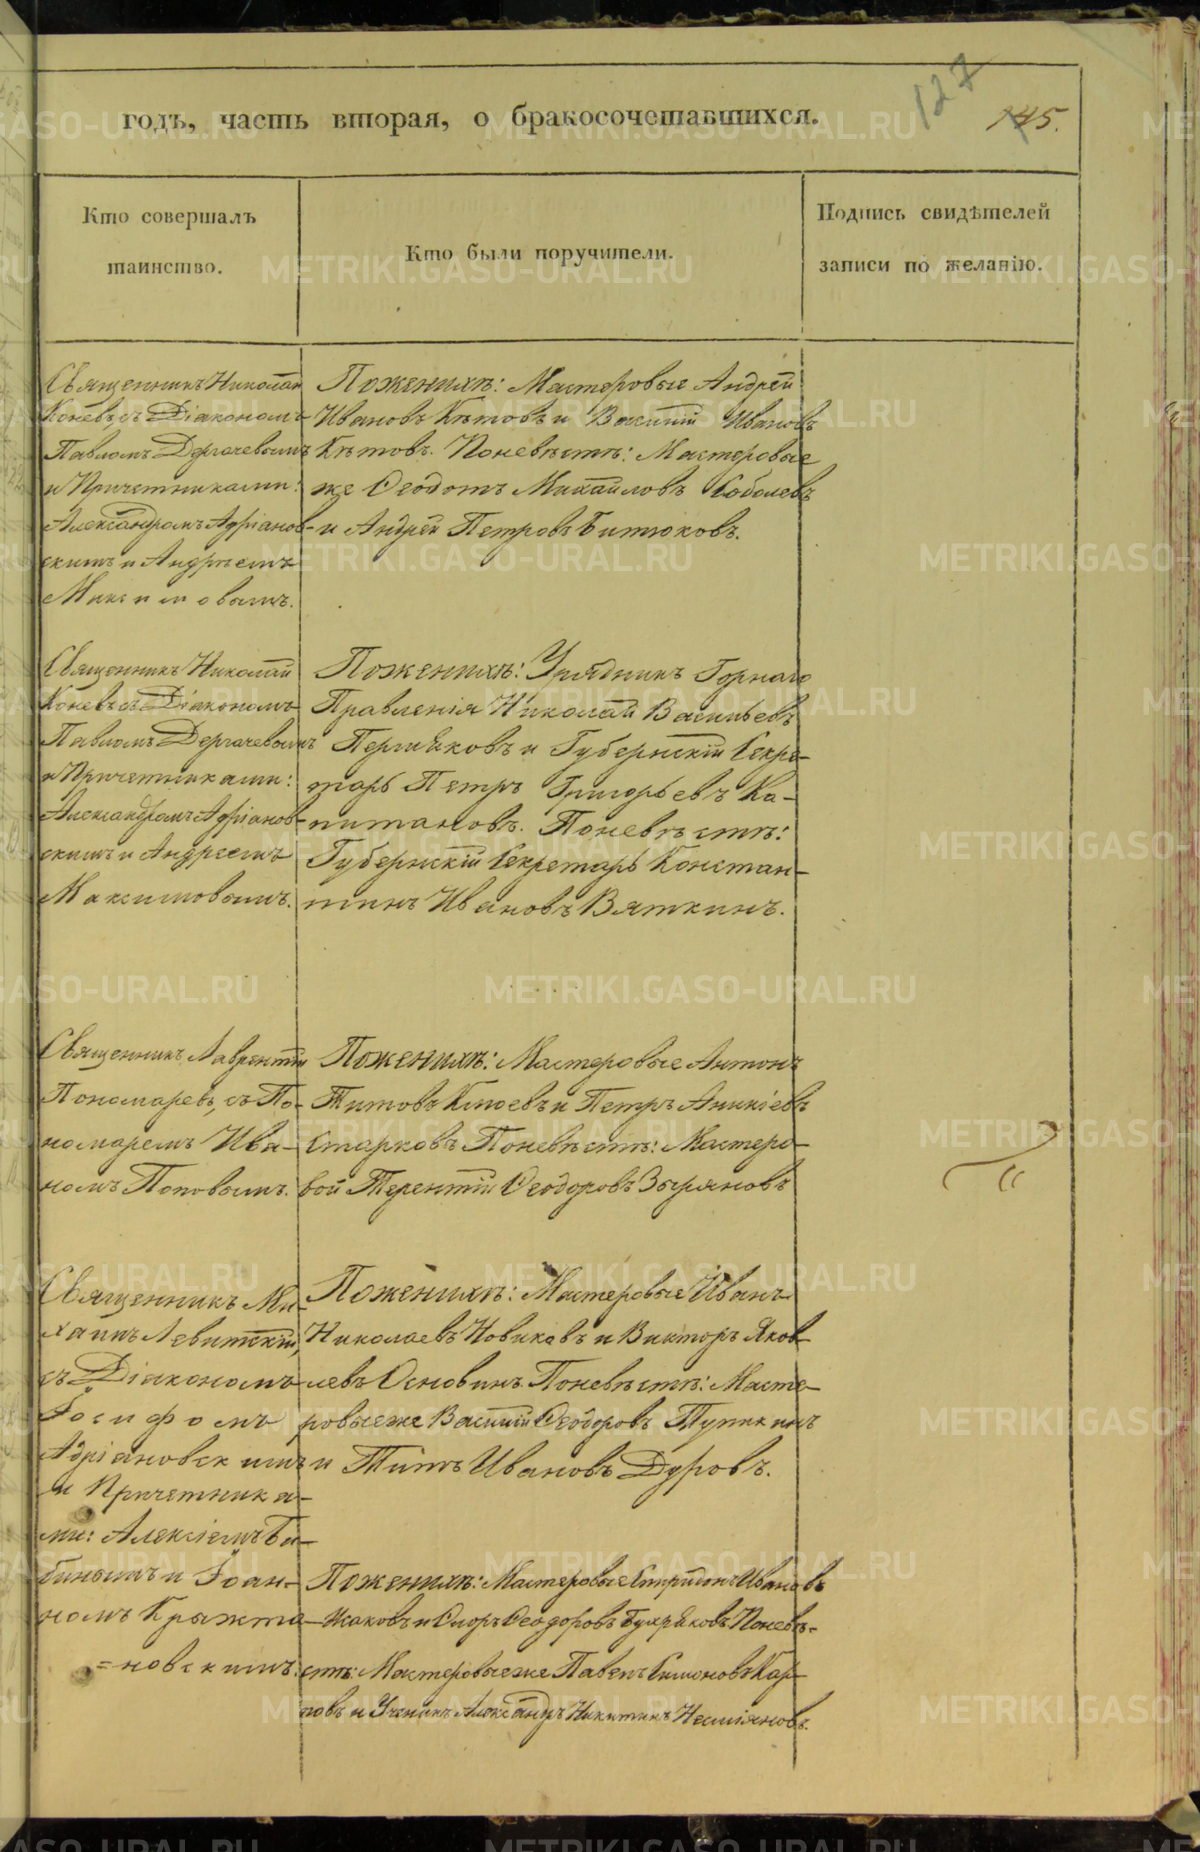 127
145.
годъ, часть вторая, о бракосочетавшихся.
Кто совершалъ
таинство.
Кто были поручители.
Подпись свидѣтелей
записи по желанію.
Священникъ Николай
Коневъ съ Діакономъ
Павломъ Дергачевымъ
и Причетниками:
Александромъ Адріанов-
скимъ и Андреемъ
Максимовымъ.
Поженихѣ: Мастеровые Андрей
Ивановъ Кѣтовъ и Василій Ивановъ
Кѣтовъ. Поневѣстѣ: Мастеровые
же Ѳеодотъ Михайловъ Соболевъ
и Андрей Петровъ Битюковъ.
Священникъ Николай
Коневъ съ Діакономъ
Павломъ Дергачевымъ
и Причетниками:
Александромъ Адріанов-
скимъ и Андреемъ
Максимовымъ.
Поженихѣ: Урядникъ Горнаго
Правленія Николай Васильевъ
Пермяковъ и Губернскій Секре-
тарь Петръ Григорьевъ Ка-
питановъ. Поневѣстѣ:
Губернскій Секретарь Констан-
тинъ Ивановъ Вяткинъ.
Священникъ Лаврентій
Пономаревъ, съ По-
номаремъ Ива-
номъ Поповымъ.
Поженихѣ: Мастеровые Антонъ
Титовъ Клюевъ и Петръ Аникіевъ
Старковъ Поневѣстѣ: Мастеро-
вой Терентій Ѳеодоровъ Зыряновъ
Священникъ Ми-
хаилъ Левитскій,
съ Діакономъ
Іосифомъ
Адріановскимъ
и Причетника-
ми: Алексіемъ Ба-
бинымъ и Іоан-
номъ Крыжта-
=новскимъ.
Поженихѣ: Мастеровые Иванъ
Николаевъ Новиковъ и Викторъ Яков-
левъ Основинъ. Поневѣстѣ: Масте-
ровые же Василій Ѳеодоровъ Тупикинъ
и Титъ Ивановъ Дуровъ.
Поженихѣ: Мастеровые Спиридонъ Ивановъ
Ѳеодоровъ Поневѣ-
стѣ: Мастеровые же Павелъ Симоновъ Кар-
повъ и Ученикъ Александръ Никитинъ
METRIKI.GASO-URAL.RU